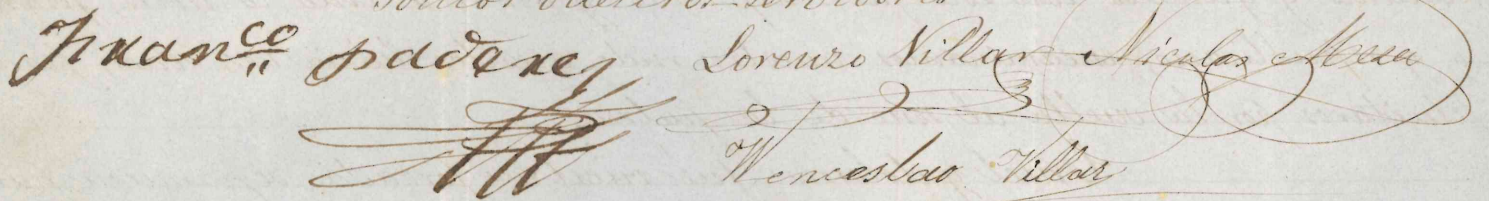 Fran.co Paderes Lorenzo Villar Nicolas Meza
Wenceslao Villar